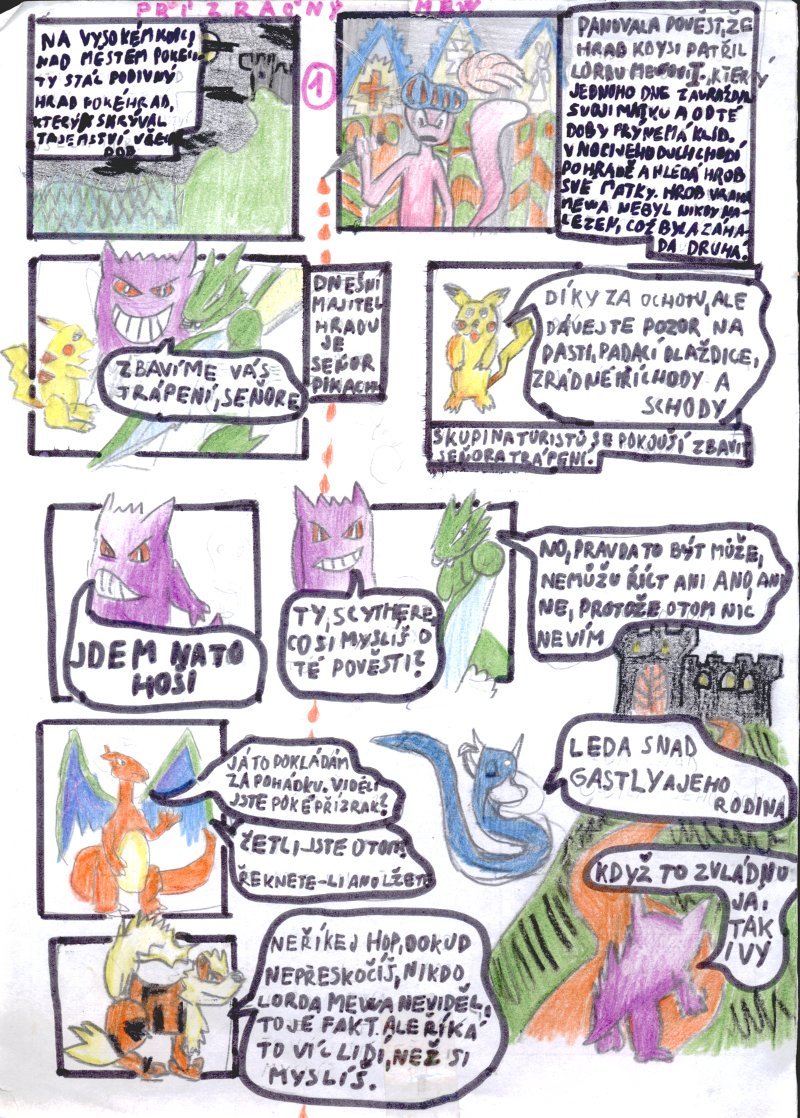 PŘÍZRAČNÝ MEW
NA VYSOKÉM KOPCI
NAD MĚSTEM POKÉCI
TY STÁL PODIVNÝ
HRAD POKÉHRAD,
KTERÝ SKRÝVAL
TAJEMSTVÍ VŠECH
DOB
1
PANOVALA POVĚST, ŽE
HRAD KDYSI PATŘIL
LORDU MEWOVI I., KTERÝ
JEDNOHO DNE ZAVRAŽDIL
SVOJI MATKU A OD TÉ
DOBY PRÝ NEMÁ KLID.
V NOCI JEHO DUCH CHODÍ
PO HRADĚ A HLEDÁ HROB
SVÉ MATKY. HROB VRAHA
MEWA NEBYL NIKDY NA-
LEZEN, COŽ BYLA ZÁHA-
DA DRUHÁ.
ZBAVÍME VÁS
TRÁPENÍ, SEŇORE
DNEŠNÍ
MAJITEL
HRADU
JE
SEŇOR
PIKACH
DÍKY ZA OCHOTU, ALE
DÁVEJTE POZOR NA
PASTI, PADACÍ DLAŽDICE,
ZRÁDNÉ PŘÍCHODY A
SCHODY
SKUPINA TURISTŮ SE POKOUŠÍ ZBAVIT
SEŇORA TRÁPENÍ.
JDEM NA TO
HOŠI
TY, SCYTHERE,
CO SI MYSLÍŠ O
TÉ POVĚSTI?
NO, PRAVDA TO BÝT MŮŽE,
NEMŮŽU ŘÍCT ANI ANO, ANI
NE, PROTOŽE O TOM NIC
NEVÍM
JÁ TO POKLÁDÁM
ZA POHÁDKU. VIDĚLI
JSTE POKÉPŘÍZRAK?
ČETLI JSTE O TOM?
ŘEKNETE-LI ANO LŽETE
LEDA SNAD
GASTLY A JEHO
RODINA
KDYŽ TO ZVLÁDNU
JÁ,
TAK
I VY
NEŘÍKEJ HOP, DOKUD
NEPŘESKOČÍŠ, NIKDO
LORDA MEWA NEVIDĚL,
TO JE FAKT. ALE ŘÍKÁ
TO VÍC LIDÍ, NEŽ SI
MYSLÍŠ.